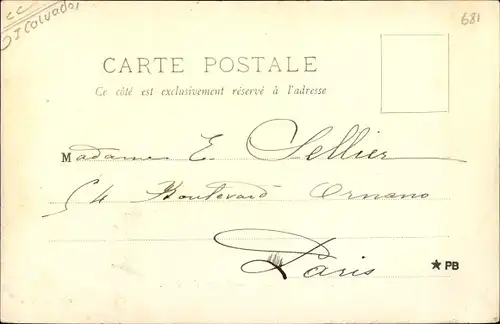 CC
Calvados
681
CARTE POSTALE
Ce côté est exclusivement réservé à l'adresse
Madame E. Sellier
54 Boulevard Ornano
Paris
★ PB